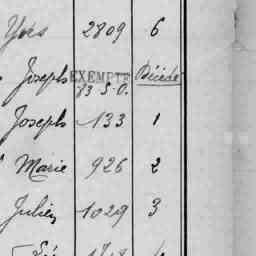 Yves 2809 6
Joseph EXEMPTÉ Décédé
83 S.O.
Joseph 133 1
Marie 926 2
Julien 1029 3